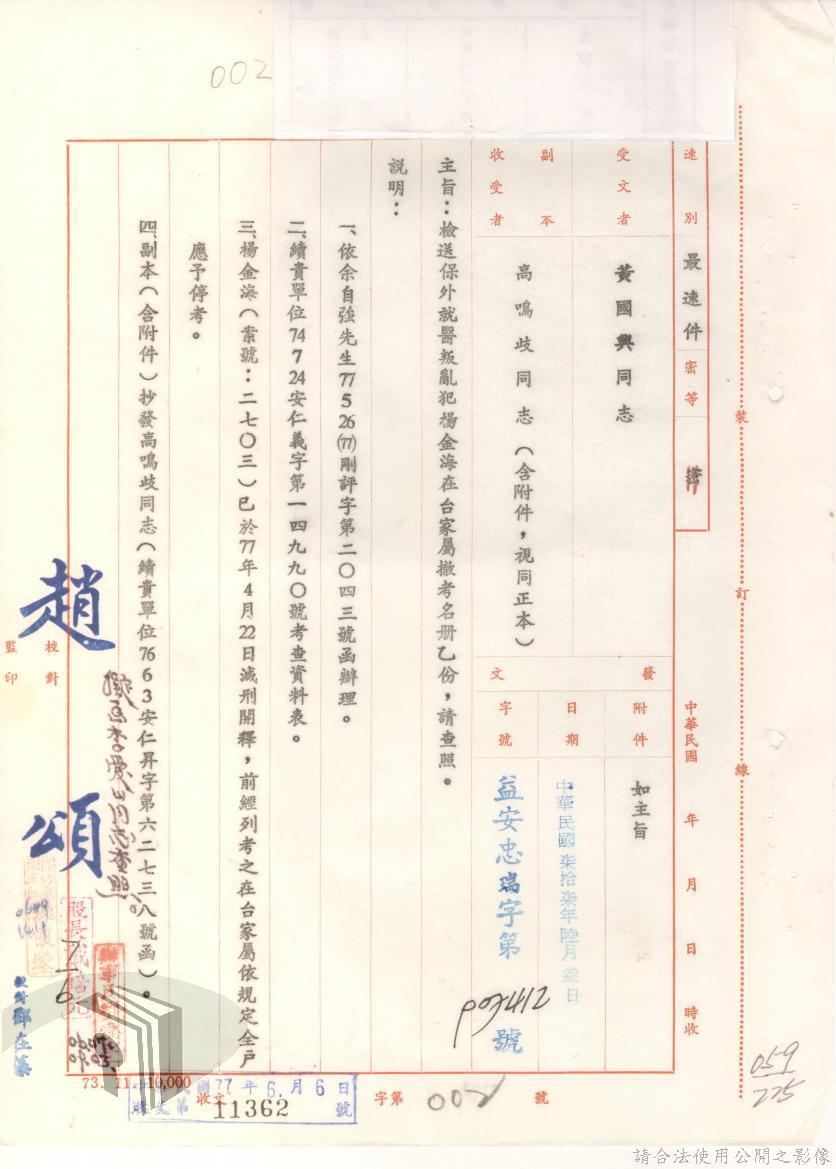 002
速別 最速件 密等
中華民國 年 月 日 時收
裝 訂 線
受文者 黃國興同志
副本收受者 高鳴歧同志（含附件，視同正本）
發文
附件 如主旨
日期 中華民國柒拾柒年陸月叁日
字號 益安忠瑞字第 號
主旨：檢送保外就醫叛亂犯楊金海在台家屬撤考名册乙份，請查照。
說明：
一、依余自強先生77 5 26(77)剛評字第二〇四三號函辦理。
二、續貴單位74 7 24安仁義字第一四九九〇號考查資料表。
三、楊金海（案號：二七〇三）已於77年4月22日減刑開釋，前經列考之在台家屬依規定全戶
應予停考。
四、副本（含附件）抄發高鳴歧同志（續貴單位76 6 3安仁昇字第六二七三八號函）。
趙 頌
校對
監印
校對 鄧在藻
73. 11. 10,000
收文 77年6月6日
11362 號
字第 002 號
059
225
請合法使用公開之影像